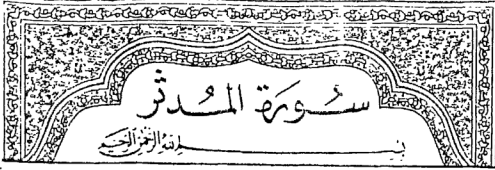 سُورَة المُدثر
بسم الله الرحمن الرحيم